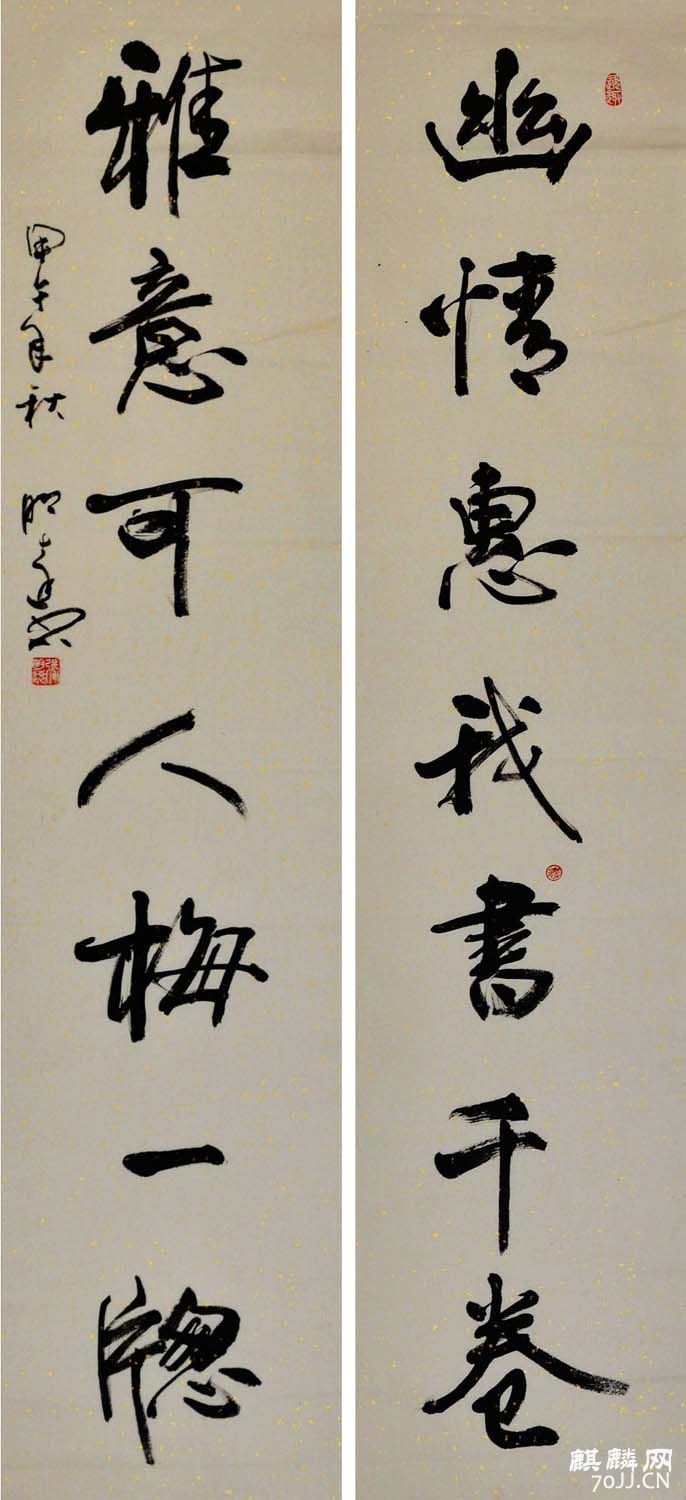 幽情惠我書千卷
雅意可人梅一牕
甲午年秋
麒麟网
70JJ.CN